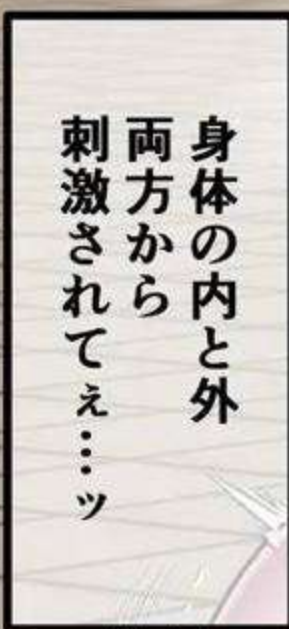 身体の内と外
両方から
刺激されてぇ…ッ